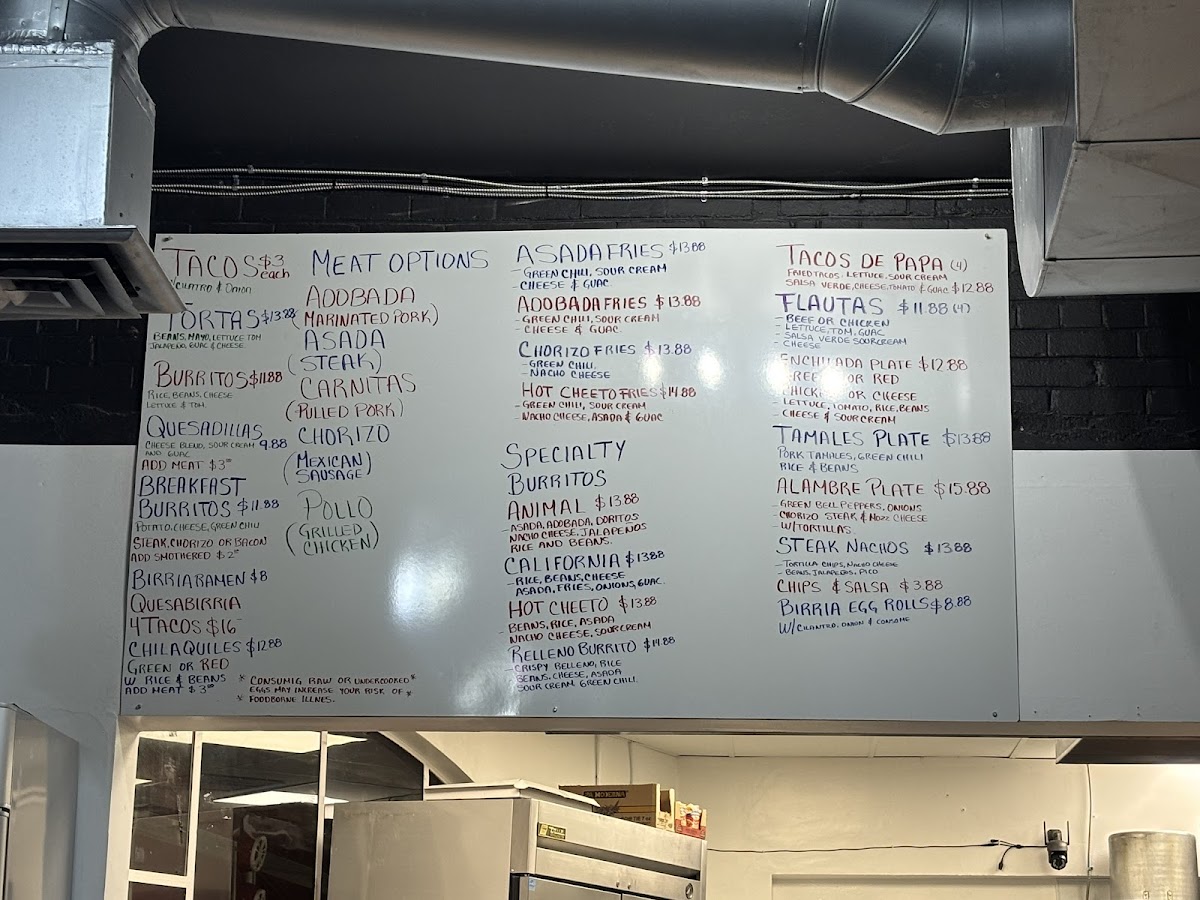 TACOS $3 each
CILANTRO & ONION
TORTAS $13.88
BEANS, MAYO, LETTUCE TOM
JALAPENO, GUAC & CHEESE
BURRITOS $11.88
RICE, BEANS, CHEESE
LETTUCE & TOM.
QUESADILLAS
CHEESE BLEND, SOUR CREAM 9.88
AND GUAC
ADD MEAT $3.00
BREAKFAST
BURRITOS $11.88
POTATO, CHEESE, GREEN CHILI
STEAK, CHORIZO OR BACON
ADD SMOTHERED $2.00
BIRRIA RAMEN $8
QUESABIRRIA
4 TACOS $16
CHILAQUILES $12.88
GREEN OR RED
W RICE & BEANS
ADD MEAT $3.00
MEAT OPTIONS
ADOBADA
(MARINATED PORK)
ASADA
(STEAK)
CARNITAS
(PULLED PORK)
CHORIZO
(MEXICAN
SAUSAGE)
POLLO
(GRILLED
CHICKEN)
* CONSUMIG RAW OR UNDERCOOKED *
EGGS MAY INCREASE YOUR RISK OF *
* FOODBORNE ILLNES.
ASADA FRIES $13.88
- GREEN CHILI, SOUR CREAM
- CHEESE & GUAC
ADOBADA FRIES $13.88
- GREEN CHILI, SOUR CREAM
- CHEESE & GUAC.
CHORIZO FRIES $13.88
- GREEN CHILI.
- NACHO CHEESE
HOT CHEETO FRIES $14.88
- GREEN CHILI, SOUR CREAM
- NACHO CHEESE, ASADA & GUAC
SPECIALTY
BURRITOS
ANIMAL $13.88
- ASADA, ADOBADA, DORITOS
NACHO CHEESE, JALAPENOS
RICE AND BEANS.
CALIFORNIA $13.88
- RICE, BEANS, CHEESE
ASADA, FRIES, ONIONS, GUAC.
HOT CHEETO $13.88
- BEANS, RICE, ASADA
NACHO CHEESE, SOUR CREAM
RELLENO BURRITO $14.88
- CRISPY RELLENO, RICE
BEANS, CHEESE, ASADA
SOUR CREAM GREEN CHILI.
TACOS DE PAPA (4)
FRIED TACOS, LETTUCE, SOUR CREAM
SALSA VERDE, CHEESE, TOMATO & GUAC $12.88
FLAUTAS $11.88 (4)
- BEEF OR CHICKEN
- LETTUCE, TOM, GUAC
- SALSA VERDE SOUR CREAM
- CHEESE
ENCHILADA PLATE $12.88
GREEN OR RED
CHICKEN OR CHEESE
- LETTUCE, TOMATO, RICE, BEANS
- CHEESE & SOUR CREAM
TAMALES PLATE $13.88
PORK TAMALES, GREEN CHILI
RICE & BEANS
ALAMBRE PLATE $15.88
- GREEN BELL PEPPERS, ONIONS
CHORIZO STEAK & MOZZ CHEESE
- W/ TORTILLAS
STEAK NACHOS $13.88
- TORTILLA CHIPS, NACHO CHEESE
- BEANS, JALAPENOS, PICO
CHIPS & SALSA $3.88
BIRRIA EGG ROLLS $8.88
W/ CILANTRO, ONION & CONSOME